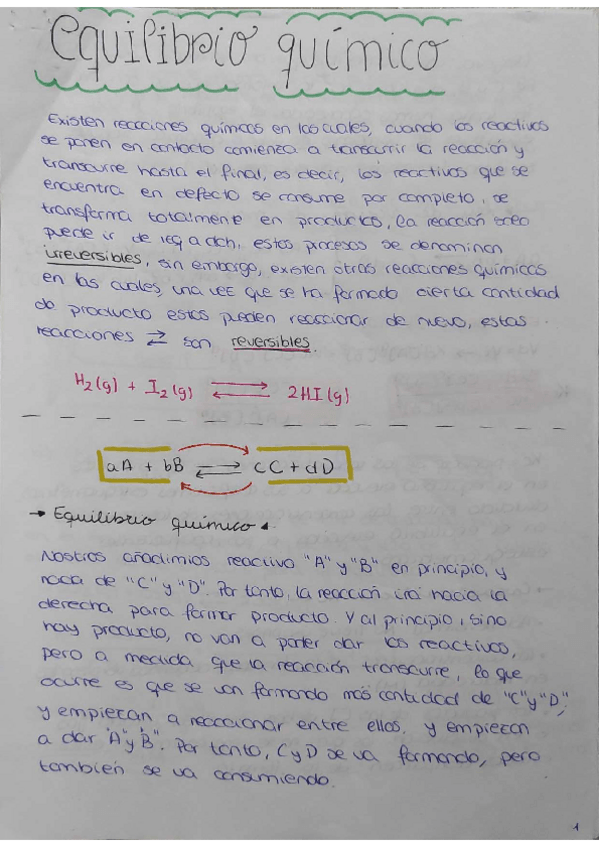 equilibrio químico
Existen reacciones químicas en las cuales, cuando los reactivos
se ponen en contacto comienza a transcurrir la reacción y
transcurre hasta el final, es decir, los reactivos que se
encuentra en defecto se consume por completo, se
transforma totalmente en productos, la reacción solo
puede ir de izq a dch, estos procesos se denominan
irreversibles, sin embargo, existen otras reacciones químicas
en las cuales, una vez que se ha formado cierta cantidad
de producto estos pueden reaccionar de nuevo, estas
reacciones ⇄ son reversibles.
H₂(g) + I₂(g) ⇄ 2HI(g)
aA + bB ⇄ cC + dD
→ Equilibrio químico.
Nostros añadimios reactivo "A" y "B" en principio, y
nada de "C" y "D". Por tanto, la reacción irá hacia la
derecha para formar producto. Y al principio, sino
hay producto, no van a poder dar los reactivos,
pero a medida que la reacción transcurre, lo que
ocurre es que se van formando más cantidad de "C" y "D",
y empiezan a reaccionar entre ellos, y empiezan
a dar "A" y "B". Por tanto, C y D se va formando, pero
también se va consumiendo.
1